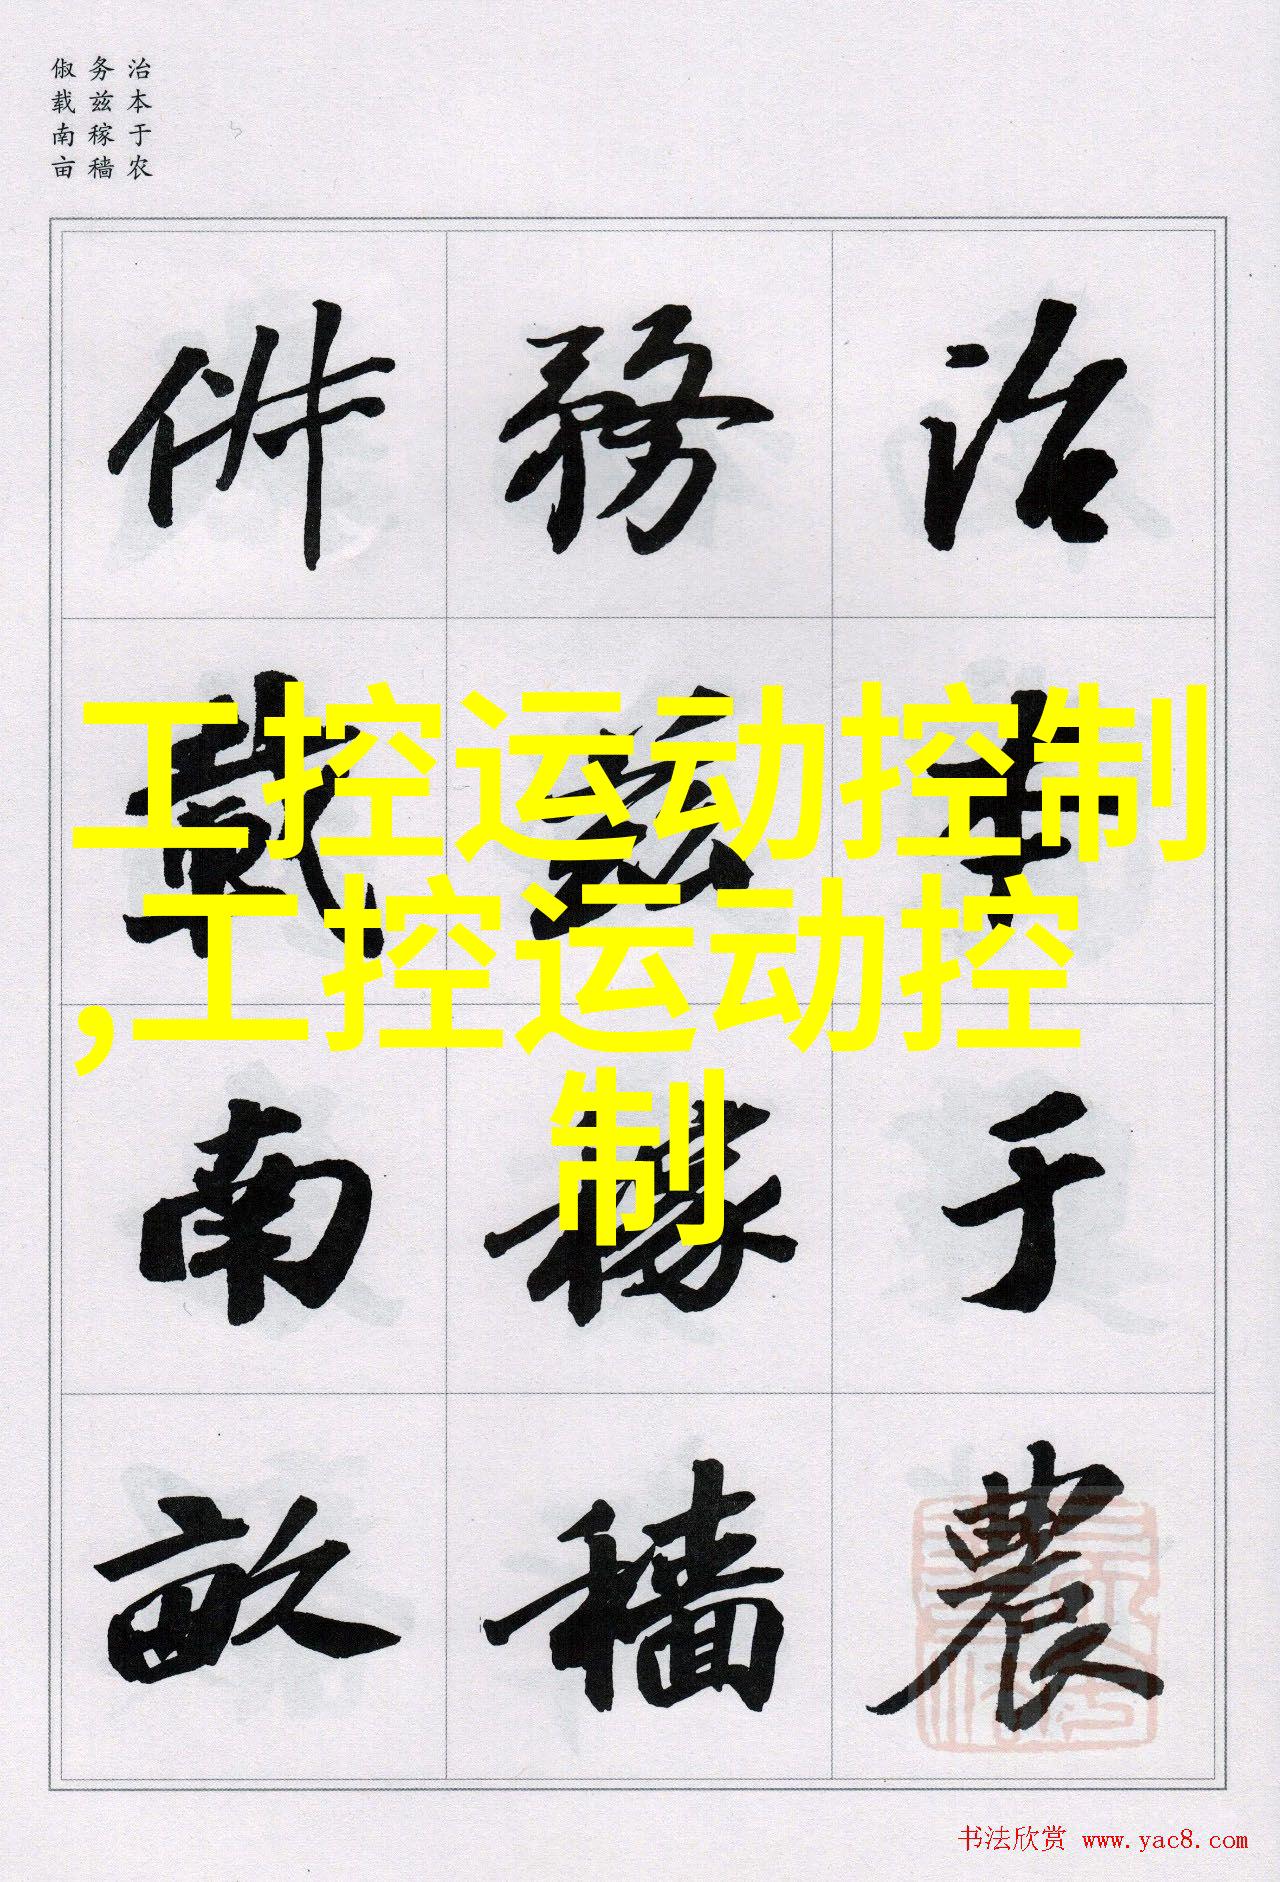 治本于农
务兹稼穑
俶载南亩
治本于農
務兹稼穡
俶載南畝
工控运动控制
,工控运动控
制
书法欣赏 www.yac8.com